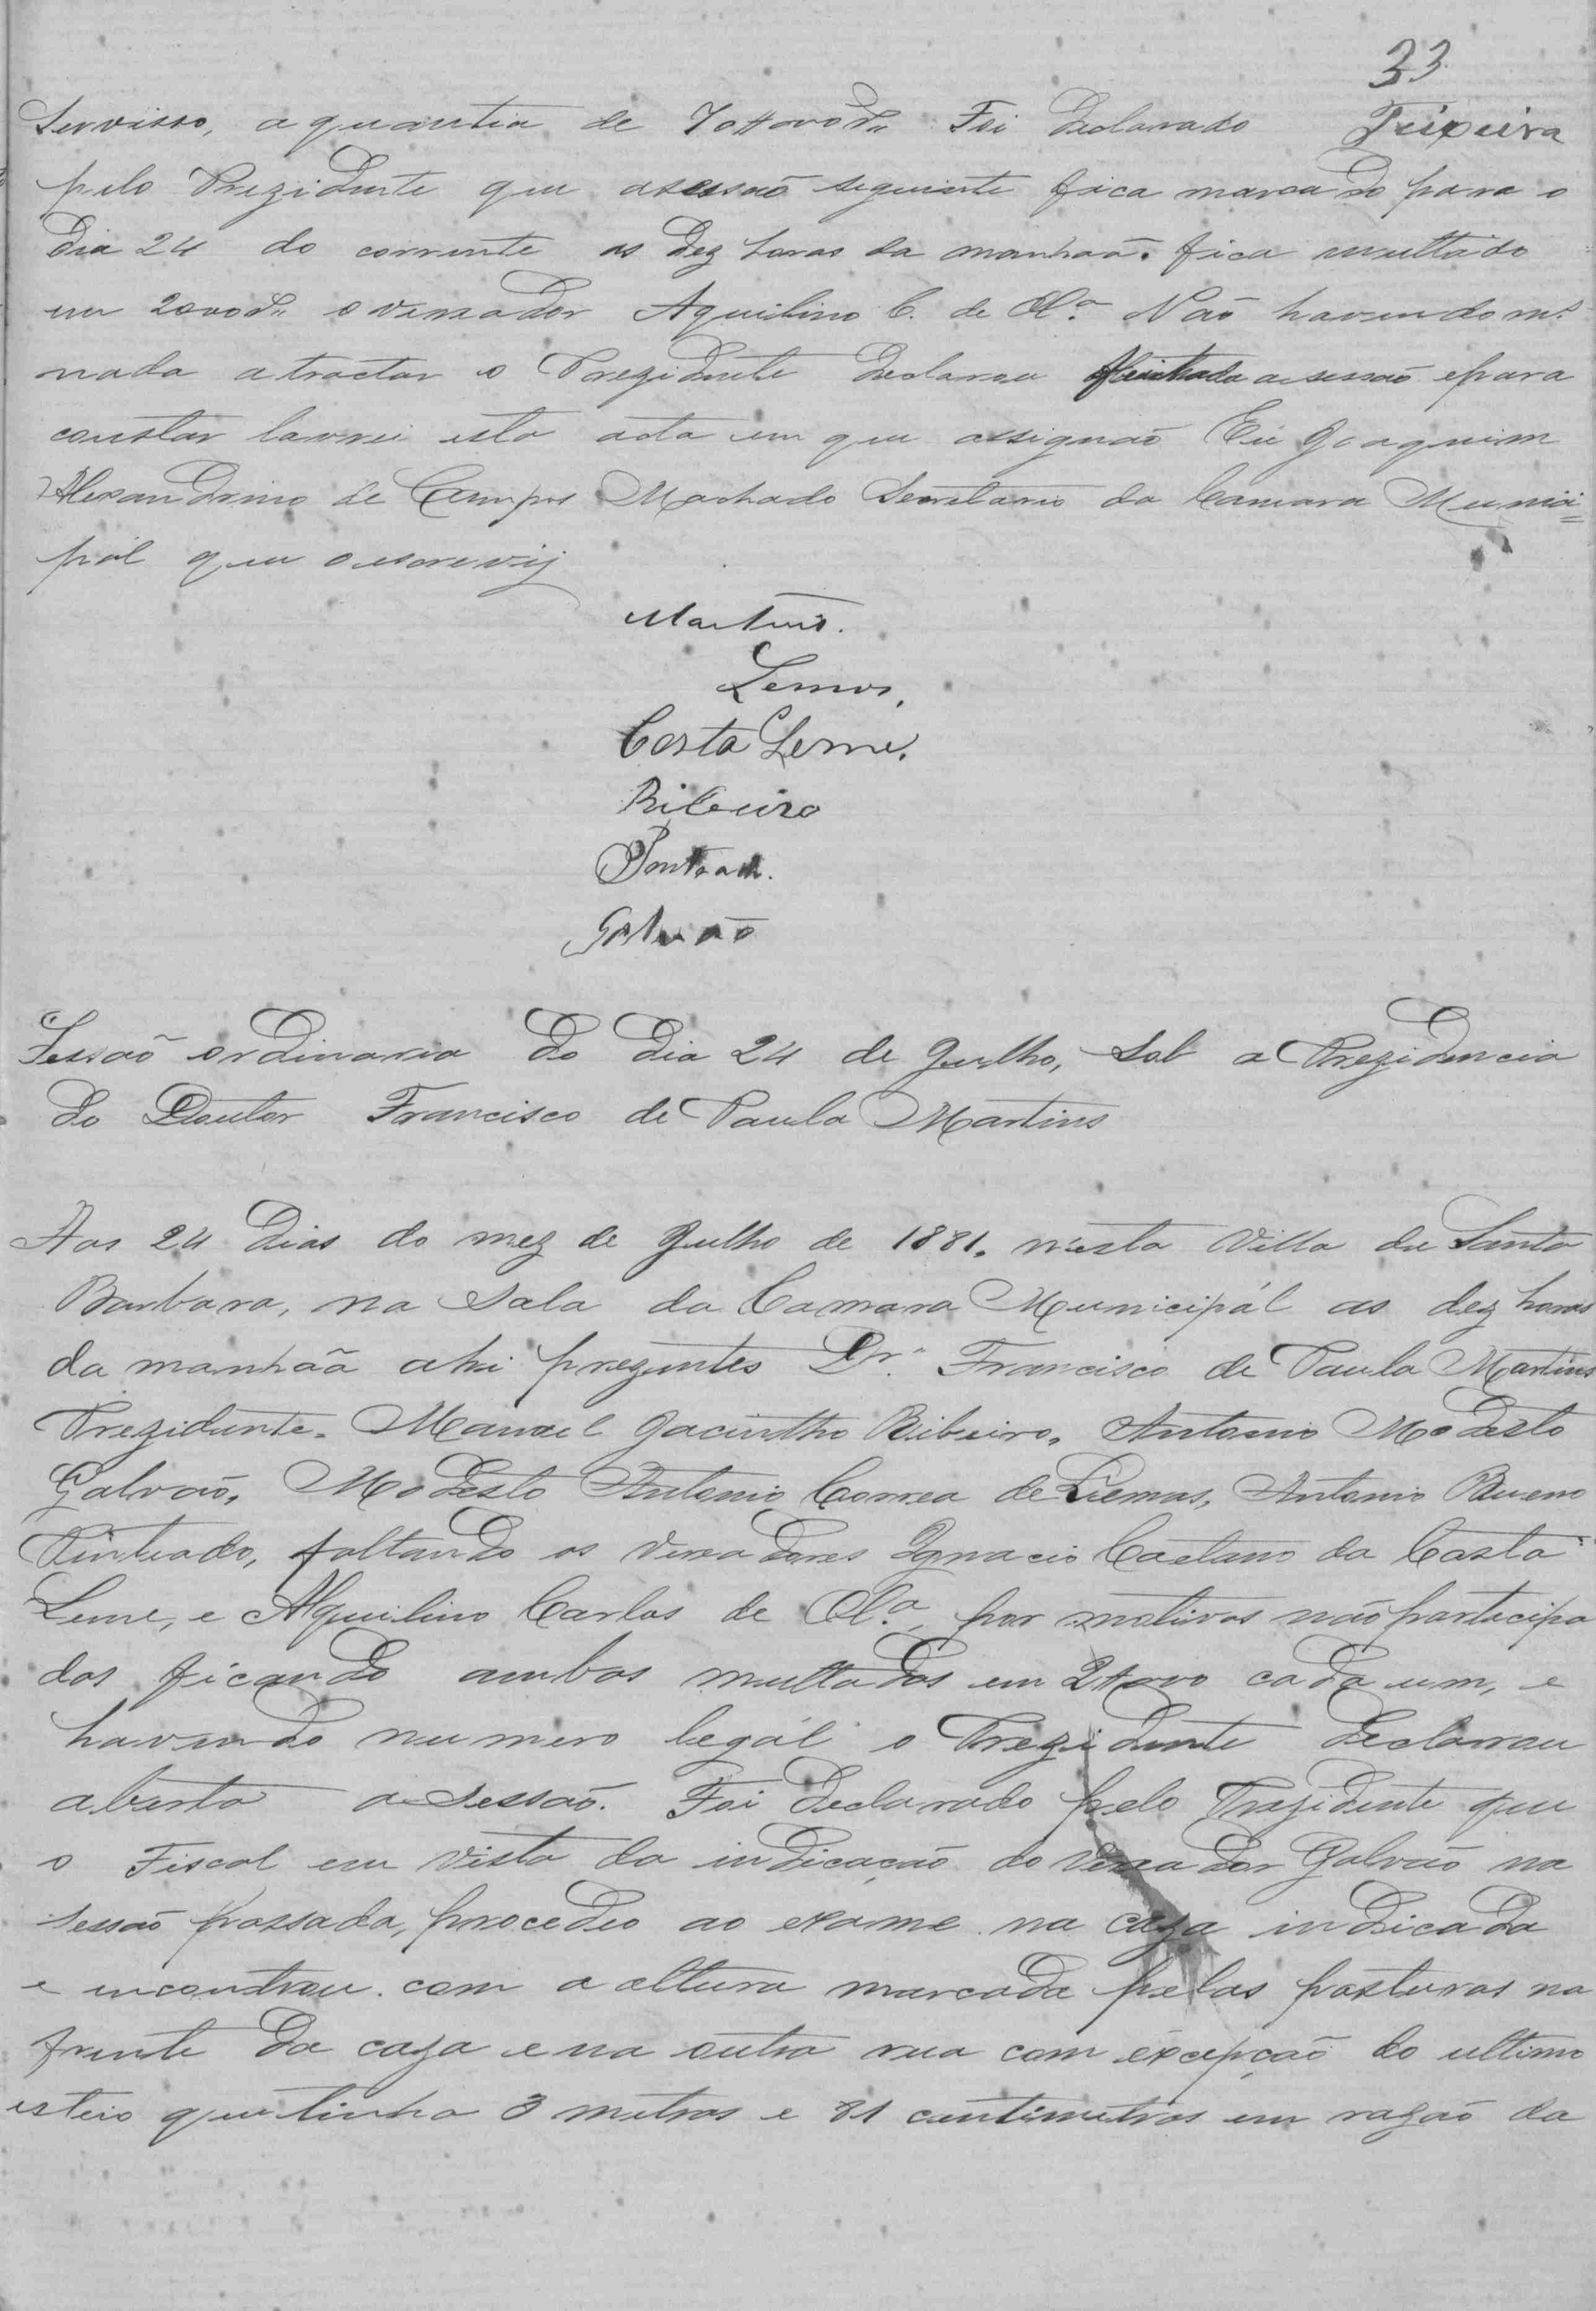 33
Servisso, a quantia de Foi Declarado Teixeira
pelo Prezidente que asessaõ seguinte fica marcado para o
Dia 24 do corrente as Dez horas da manhaã. fica multado
em o vereador Aquilino C. de Olª Naõ havendo ms
nada a tractar o Prezidente Declarou feichada a sessaõ epara
constar lavrei esta acta em que assignaõ Eu Joaquim
Alexandrino de Campos Machado Secretario da Camara Munici=
pál que o escrevij
Martins.
Lemos,
Costa Leme,
Ribeiro
Galvão
Sessaõ ordinaria do Dia 24 de Julho, sob a Prezidencia
do Doutor Francisco de Paula Martins
Aos 24 Dias do mez de Julho de 1881. n'esta Villa de Santa
Barbara, na Sala da Camara Municipál as dez horas
da manhãa ahi prezentes Dr. Francisco de Paula Martins
Prezidente. Manoel Jacintho Ribeiro, Antonio Modesto
Galvaõ, Modesto Antonio Correa de Lemos, Antonio Bueno
Pinteado, faltando os vereadores Ignacio Caetano da Costa
Leme, e Aquilino Carlos de Olª, por motivos não participa
dos ficando ambos multados em cada um, e
havendo numero legál o Prezidente Declarou
aberta a Sessaõ. Foi Declarado pelo Prezidente que
o Fiscal em vista da indicação do vereador Galvão na
sessaõ passada, procedeo ao exame na caza indicada
e encontrou com a altura marcada pelas posturas na
frente Da caza e na outra rua com excepçaõ do ultimo
esteio que tinha 3 metros e 81 centimetros em razaõ da